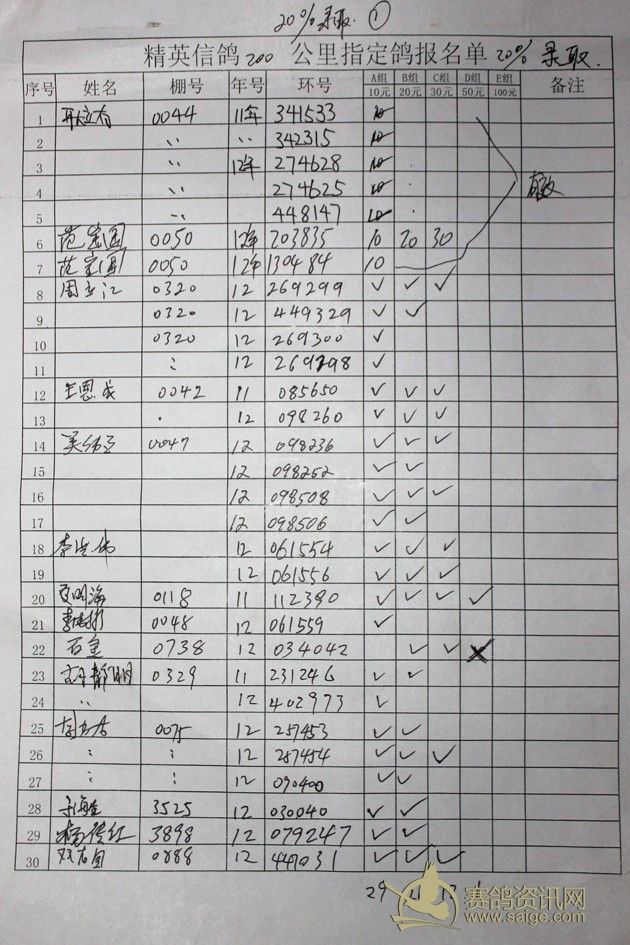 20% 录取. ①
精英信鸽 200 公里指定鸽报名单 20% 录取.
序号 姓名 棚号 年号 环号 A组 10元 B组 20元 C组 30元 D组 50元 E组 100元 备注
1 0044 11年 341533 10
2 〃 342315 10
3 〃 12年 274628 10
4 〃 274625 10
5 〃 448147 10
6 范宝国 0050 12年 203835 10 20 30
7 范宝国 0050 12年 130484 10
8 周立江 0320 12 269299 ✓ ✓ ✓
9 0320 12 449329 ✓ ✓
10 0320 12 269300 ✓
11 〃 12 269298 ✓
12 王恩成 0042 11 085650 ✓ ✓ ✓
13 〃 12 098260 ✓ ✓ ✓
14 0047 12 098236 ✓ ✓ ✓
15 12 098252 ✓ ✓
16 12 098508 ✓ ✓ ✓
17 12 098506 ✓ ✓
18 12 061554 ✓ ✓ ✓
19 12 061556 ✓ ✓ ✓
20 0118 11 112390 ✓ ✓ ✓ ✓
21 0048 12 061559 ✓
22 石金 0738 12 034042 ✓ ✓
23 0329 11 231246 ✓ ✓
24 〃 12 402973 ✓
25 0075 12 257453 ✓ ✓
26 〃 〃 12 257454 ✓ ✓ ✓
27 〃 〃 12 090400 ✓ ✓
28 3525 12 030040 ✓ ✓
29 杨传红 3898 12 079247 ✓ ✓
30 0888 12 447031 ✓ ✓ ✓
29
赛鸽资讯网
www.saige.com